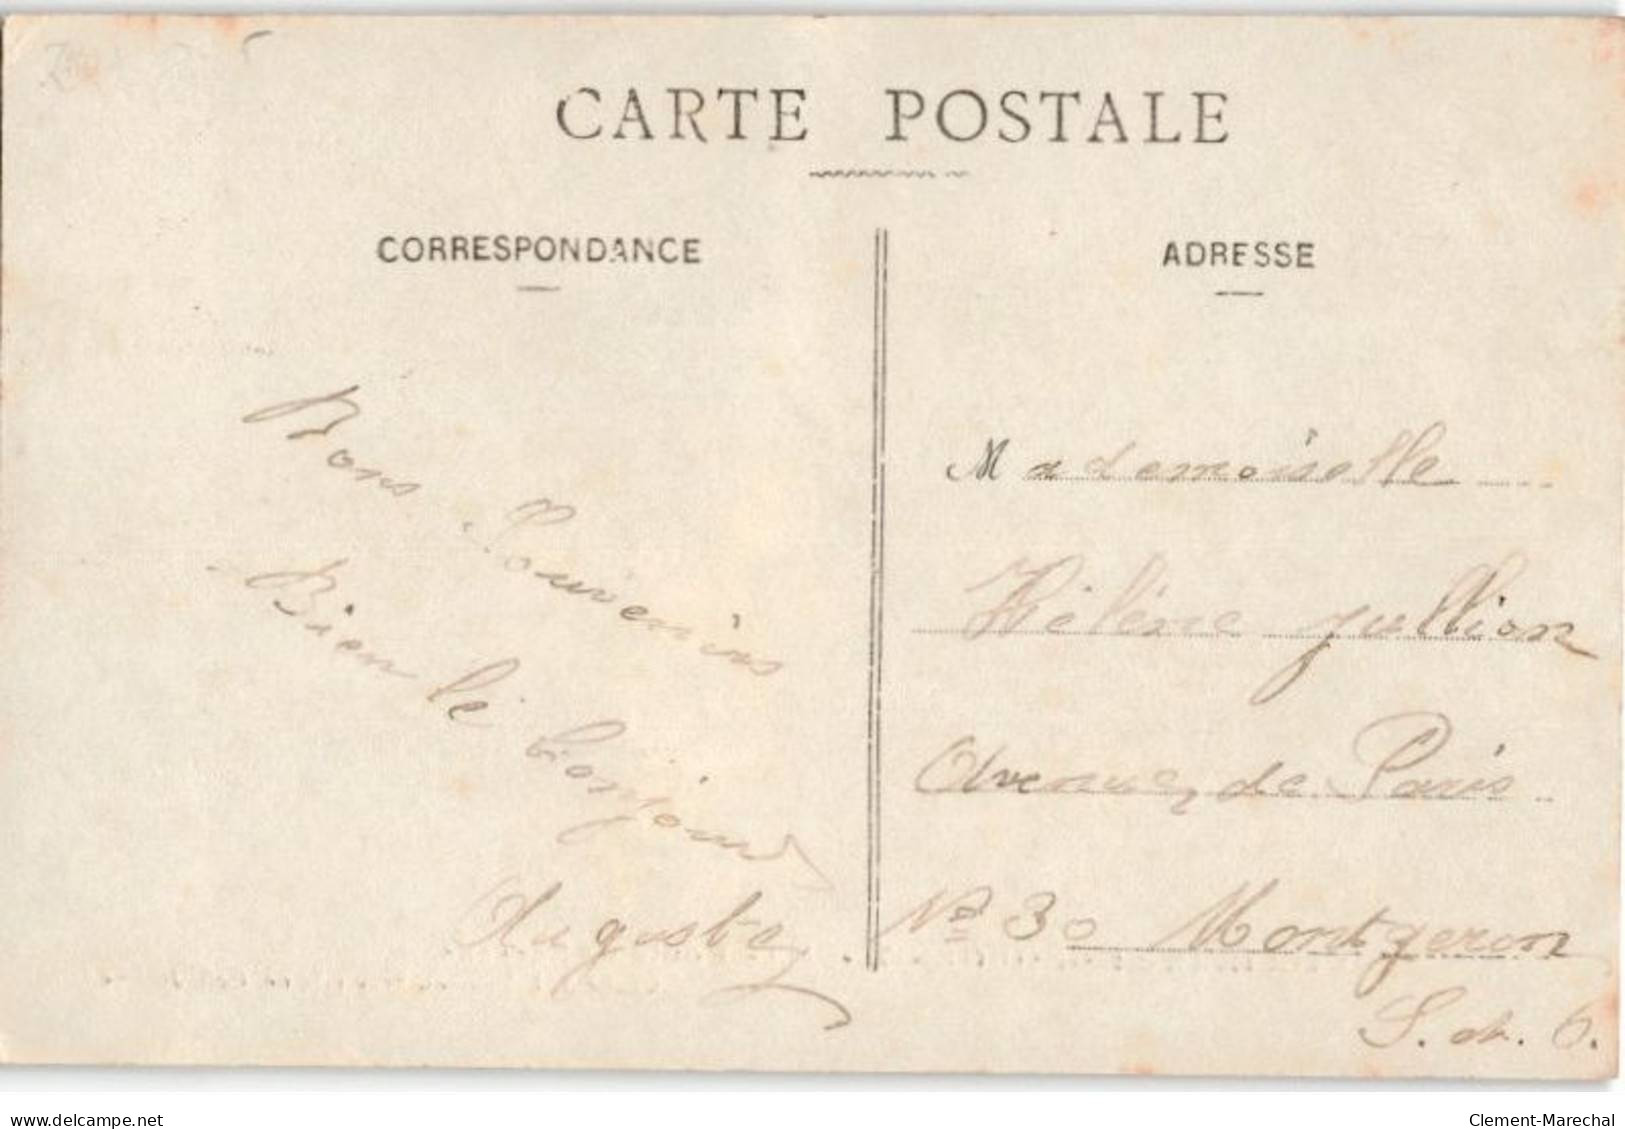 CARTE POSTALE
CORRESPONDANCE
Bons Souvenirs
Bien le bonjour
Auguste
ADRESSE
Mademoiselle
Hélène Jullion
Avenue de Paris
No 30 Montgeron
S. et. O.
delcampe.net
Clement-Marechal